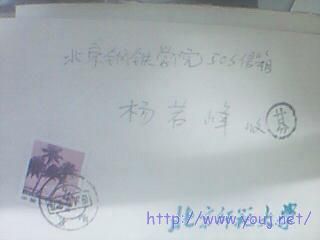 北京钢铁学院505信箱
杨若峰 收
北京师范大学
http://www.youj.net/